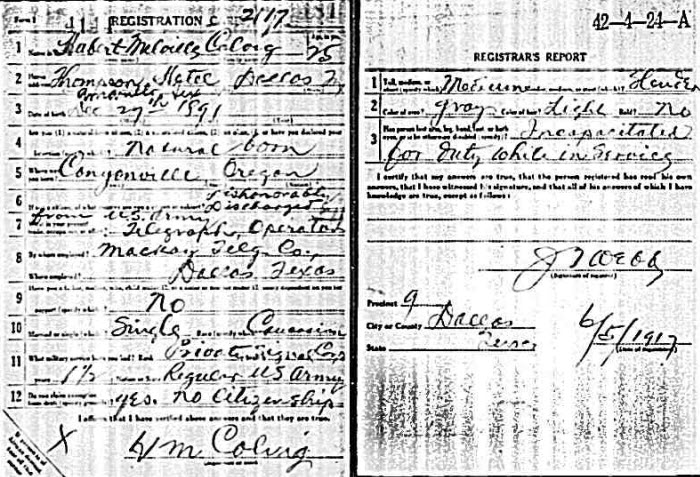 Form 1 REGISTRATION C 2117
1 Hubert Melville Colvig 25
2 Thompson Hotel Dallas Tx
Amarillo Tex
3 Date of birth Dec 27th 1891
4 Natural born
5 Canyonville Oregon
6 Dishonorably
Discharged
from U.S. Army
7 Telegraph Operator
8 By whom employed? Mackay Telg Co,
Where employed? Dallas Texas
9 No
10 Married or single Single Caucasian
11 What military service have you had? Rank Private Signal Corp
years 1½ Regular US Army
12 Do you claim exemption yes. no Citizenship
I affirm that I have verified above answers and that they are true.
X H M Colvig
42-4-24-A
REGISTRAR'S REPORT
1 Tall, medium, or short (specify which)? Medium Slender
2 Color of eyes? gray Color of hair? Light Bald? No
3 Has person lost arm, leg, hand, foot, or both eyes, or is he otherwise disabled (specify)? Incapacitated
for duty while in Service
I certify that my answers are true, that the person registered has read his own
answers, that I have witnessed his signature, and that all of his answers of which I have
knowledge are true, except as follows:
J Webb
(Signature of registrar)
Precinct 9
City or County Dallas
State Texas
6/5/1917
(Date of registration)